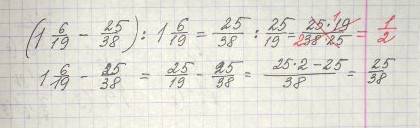 (1 6/19 - 25/38) : 1 6/19 = 25/38 : 25/19 = 25·19/38·25 = 1/2
1 6/19 - 25/38 = 25/19 - 25/38 = 25·2-25/38 = 25/38